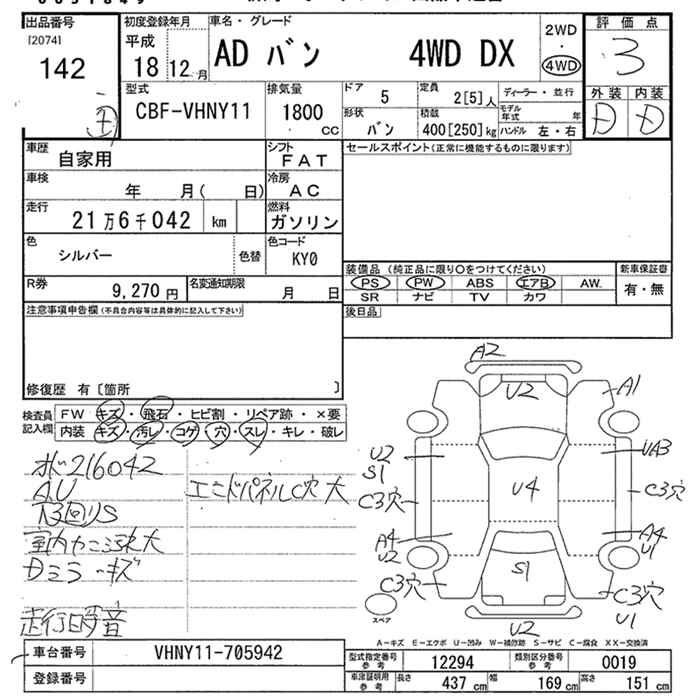 出品番号
[2074]
142
初度登録年月
平成
18 12月
車名・グレード
AD バン 4WD DX
2WD
・
4WD
評価点
3
外装 内装
D D
型式
CBF-VHNY11
排気量
1800
cc
ドア
5
定員
2[5]人
ディーラー・並行
モデル年式 年
形状
バン
積載
400[250]kg
ハンドル 左・右
車歴
自家用
シフト
FAT
セールスポイント(正常に機能するものに限ります)
車検
年 月( 日)
冷房
AC
走行
21万6千042 km
燃料
ガソリン
色
シルバー
色替
色コード
KY0
R券
9,270円
名変通知期限
月 日
装備品 (純正品に限り○をつけてください)
新車保証書
PS PW ABS エアB AW.
SR ナビ TV カワ
有・無
後日品
注意事項申告欄(不具合内容等は具体的に記入して下さい)
修復歴 有[箇所 ]
検査員記入欄
FW キズ・飛石・ヒビ割・リペア跡・×要
内装 キズ・汚レ・コゲ・穴・スレ・キレ・破レ
216042
AU
下回りS
エンドパネルC穴大
Dミラーキズ
走行時異音
A2
U2
A1
U2
S1
UA3
C3穴
U4
C3穴
A4
U2
A4
U1
C3穴
S1
C3穴
U1
U2
スペア
A-キズ E-エクボ U-凹み W-補修跡 S-サビ C-腐食 XX-交換済
車台番号
VHNY11-705942
登録番号
型式指定番号参考
12294
類別区分番号参考
0019
車庫証明用参考
長さ 437 cm
幅 169 cm
高さ 151 cm